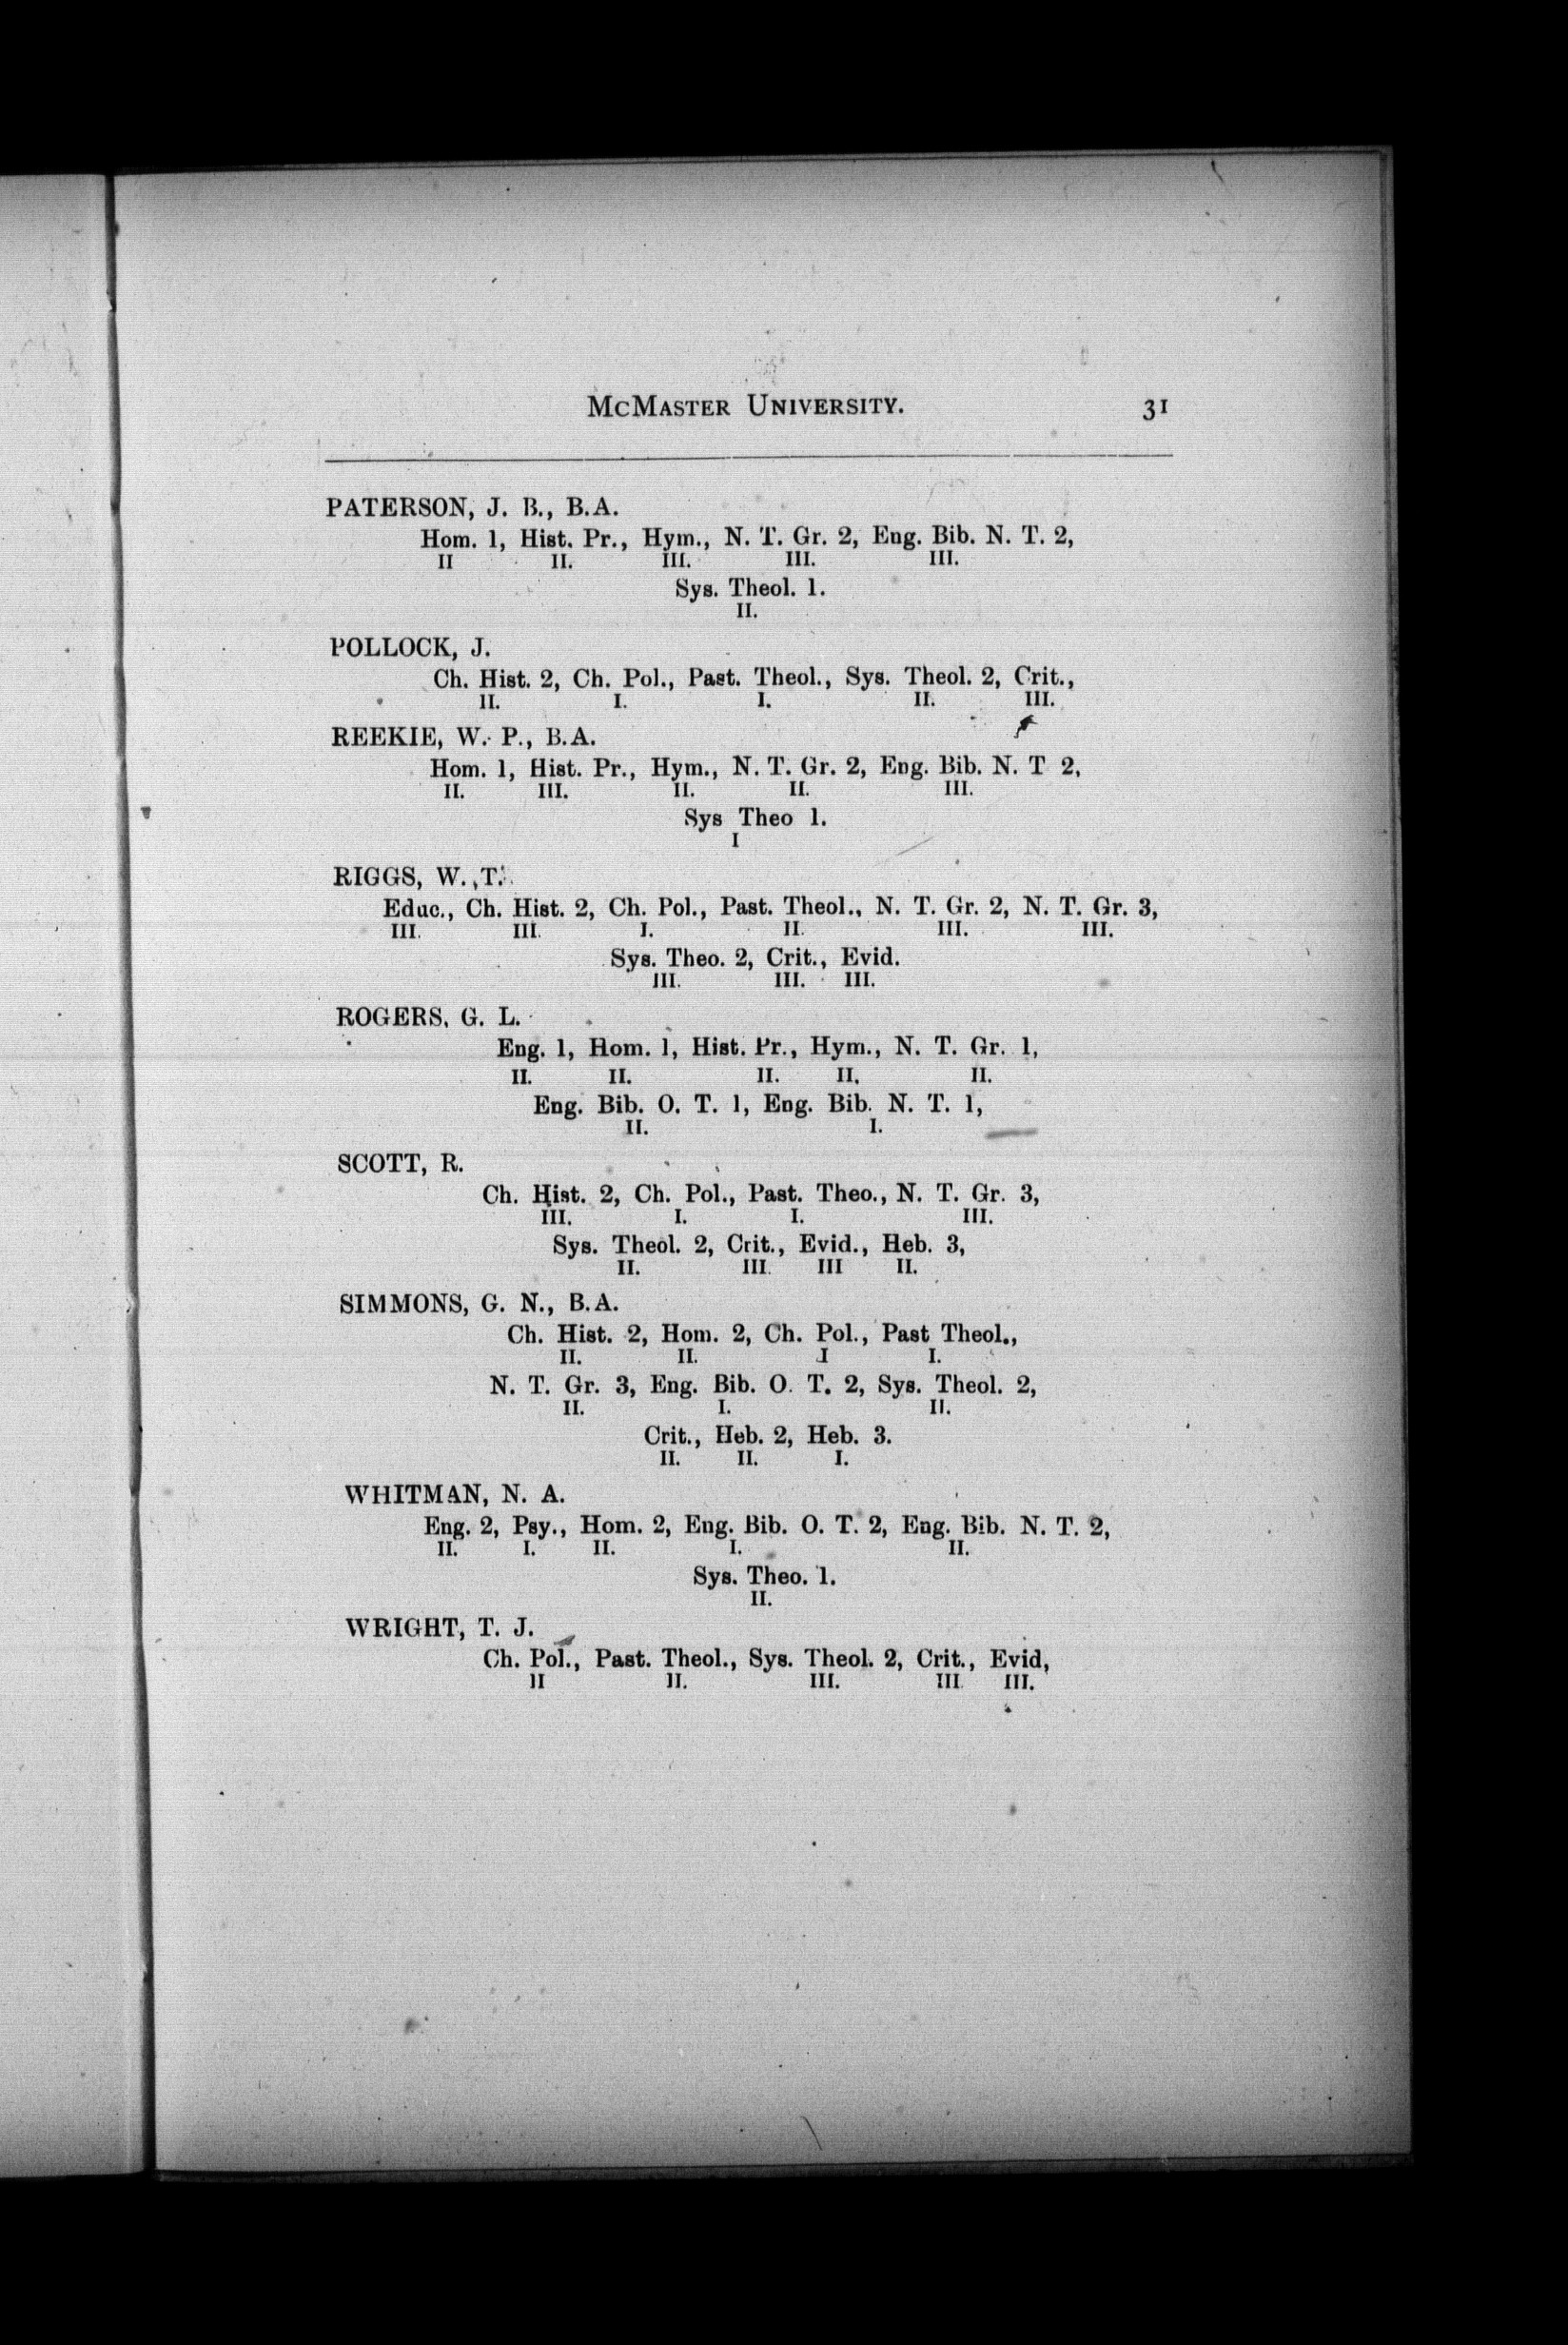 McMaster University. 31
PATERSON, J. B., B.A.
Hom. 1, Hist. Pr., Hym., N. T. Gr. 2, Eng. Bib. N. T. 2,
II II. III. III. III.
Sys. Theol. 1.
II.
POLLOCK, J.
Ch. Hist. 2, Ch. Pol., Past. Theol., Sys. Theol. 2, Crit.,
II. I. I. II. III.
REEKIE, W. P., B.A.
Hom. 1, Hist. Pr., Hym., N. T. Gr. 2, Eng. Bib. N. T 2,
II. III. II. II. III.
Sys Theo 1.
I
RIGGS, W. T.
Educ., Ch. Hist. 2, Ch. Pol., Past. Theol., N. T. Gr. 2, N. T. Gr. 3,
III. III. I. II. III. III.
Sys. Theo. 2, Crit., Evid.
III. III. III.
ROGERS, G. L.
Eng. 1, Hom. 1, Hist. Pr., Hym., N. T. Gr. 1,
II. II. II. II. II.
Eng. Bib. O. T. 1, Eng. Bib. N. T. 1,
II. I.
SCOTT, R.
Ch. Hist. 2, Ch. Pol., Past. Theo., N. T. Gr. 3,
III. I. I. III.
Sys. Theol. 2, Crit., Evid., Heb. 3,
II. III. III II.
SIMMONS, G. N., B.A.
Ch. Hist. 2, Hom. 2, Ch. Pol., Past Theol.,
II. II. I I.
N. T. Gr. 3, Eng. Bib. O. T. 2, Sys. Theol. 2,
II. I. II.
Crit., Heb. 2, Heb. 3.
II. II. I.
WHITMAN, N. A.
Eng. 2, Psy., Hom. 2, Eng. Bib. O. T. 2, Eng. Bib. N. T. 2,
II. I. II. I. II.
Sys. Theo. 1.
II.
WRIGHT, T. J.
Ch. Pol., Past. Theol., Sys. Theol. 2, Crit., Evid,
II II. III. III. III.